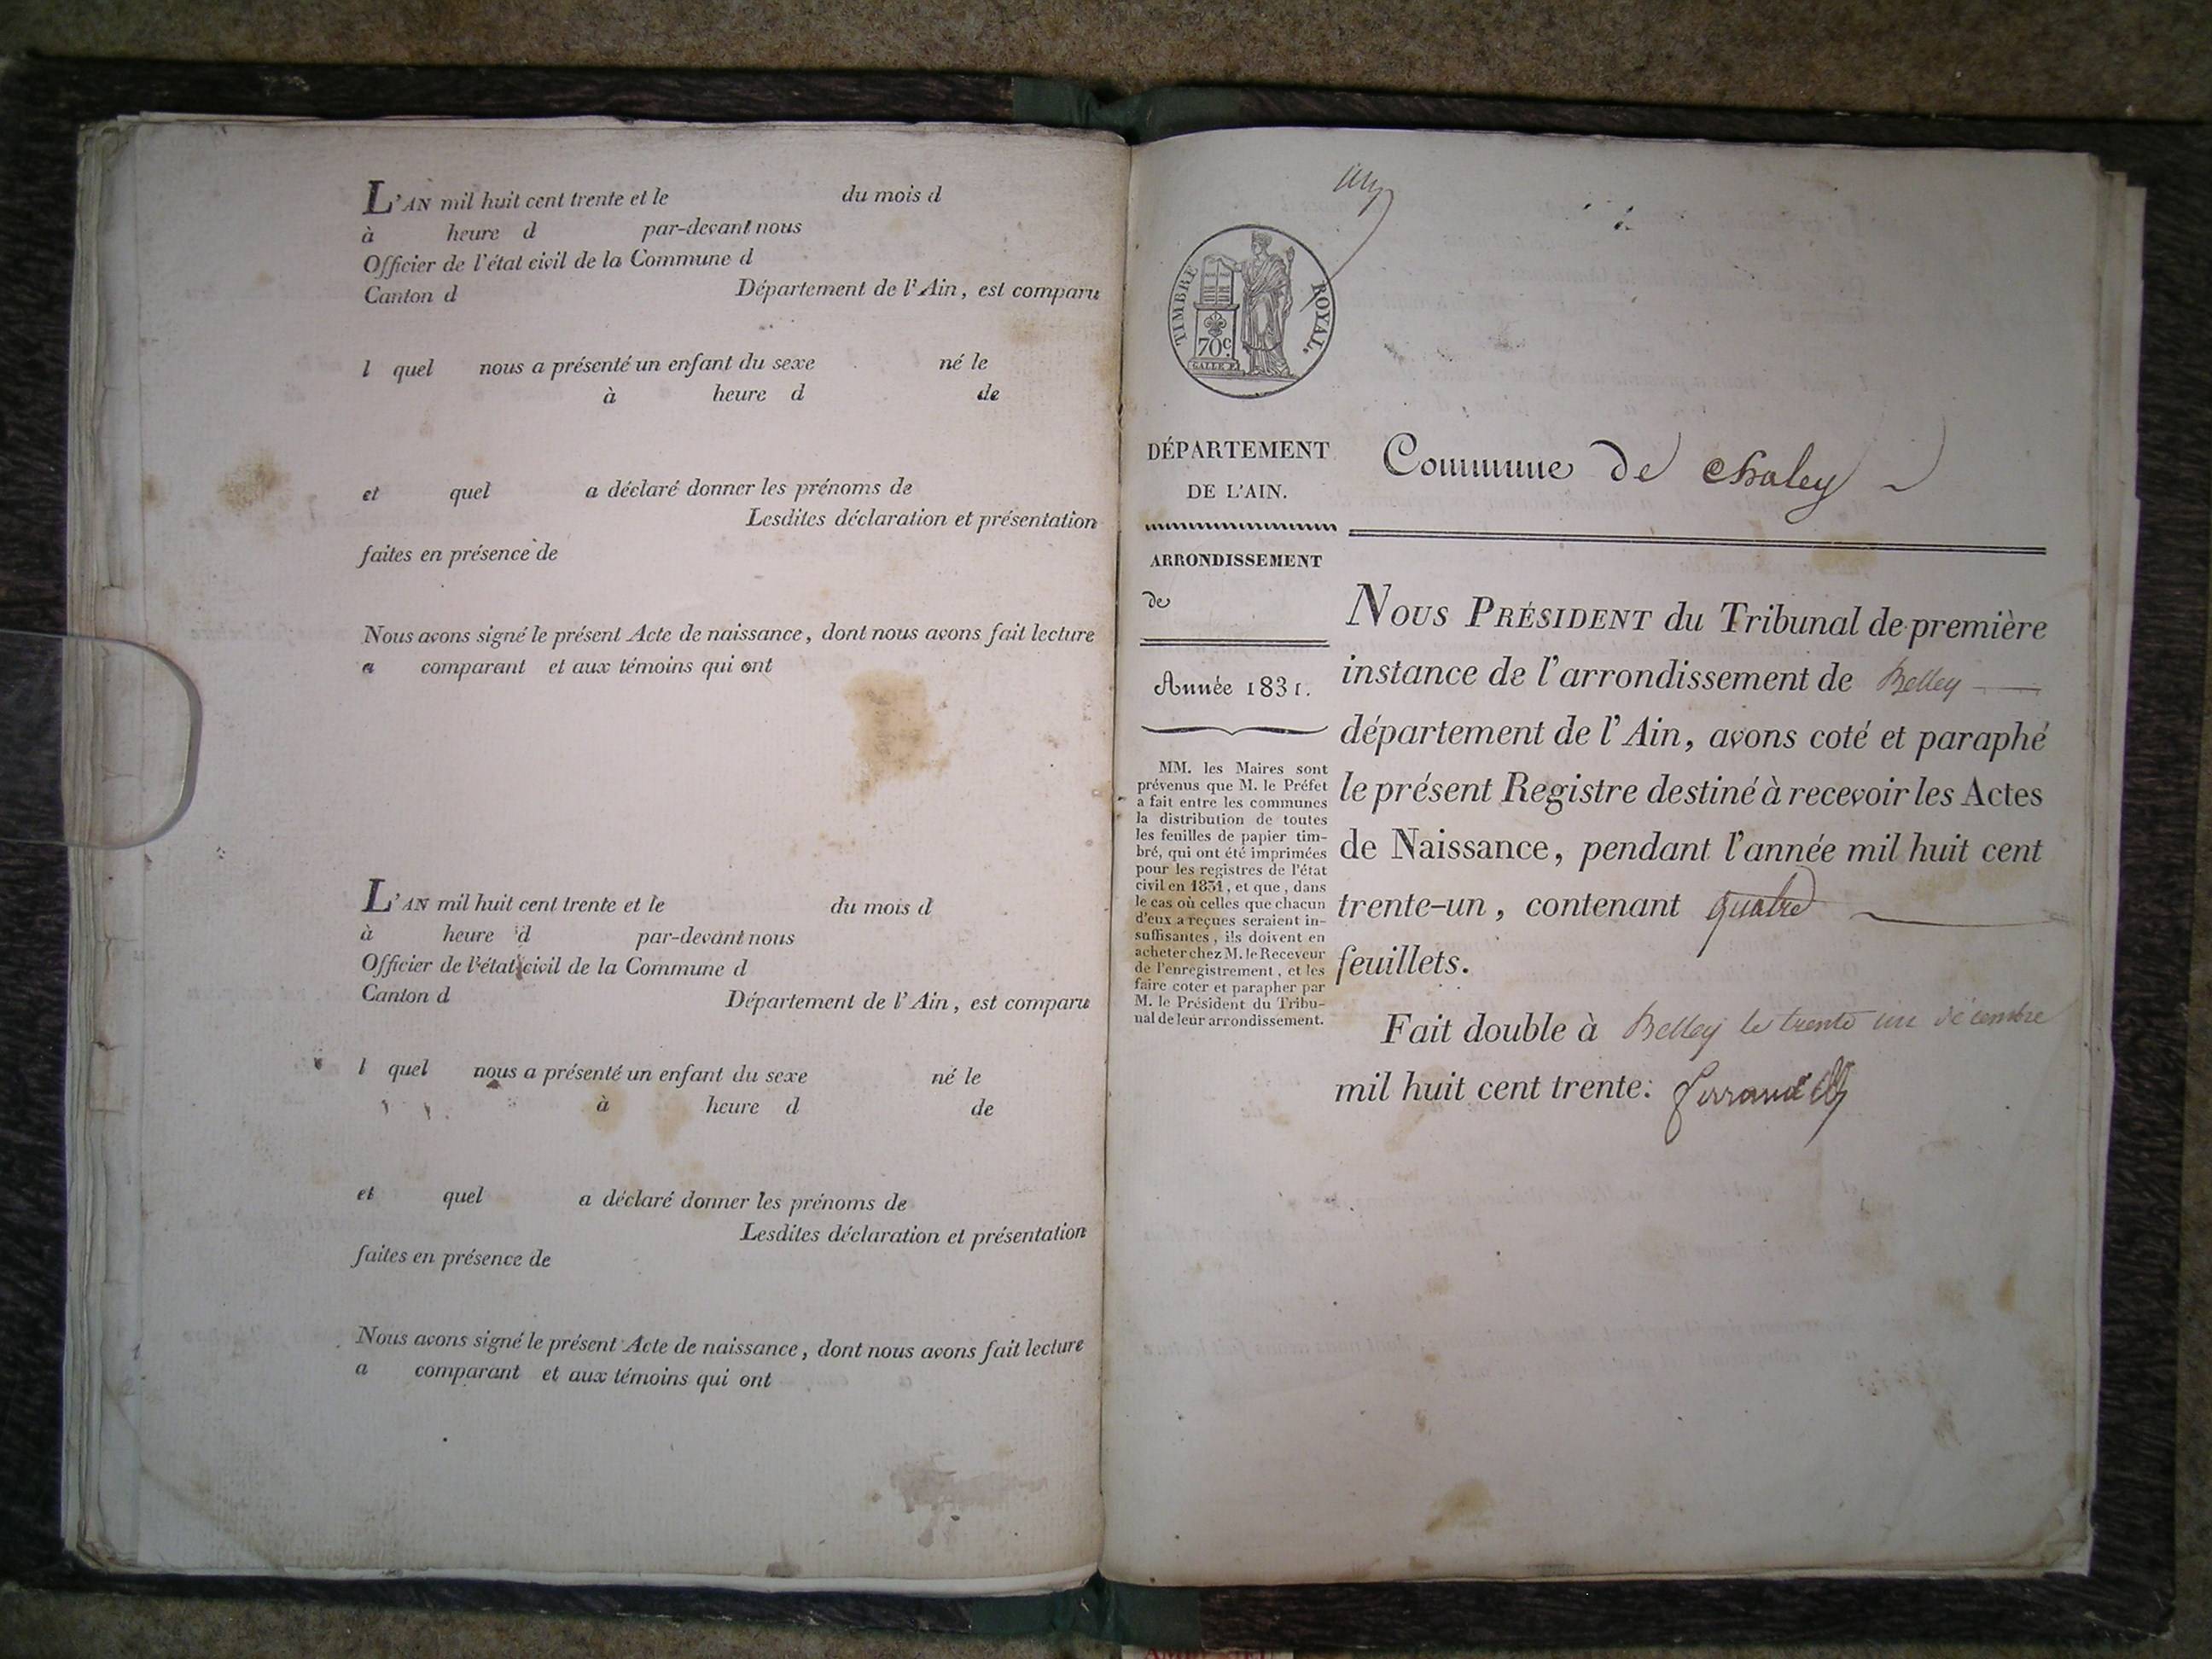 L'AN mil huit cent trente et le du mois d
à heure d par-devant nous
Officier de l'état civil de la Commune d
Canton d Département de l'Ain, est comparu
l quel nous a présenté un enfant du sexe né le
à heure d de
et quel a déclaré donner les prénoms de
Lesdites déclaration et présentation
faites en présence de
Nous avons signé le présent Acte de naissance, dont nous avons fait lecture
a comparant et aux témoins qui ont
L'AN mil huit cent trente et le du mois d
à heure d par-devant nous
Officier de l'état civil de la Commune d
Canton d Département de l'Ain, est comparu
l quel nous a présenté un enfant du sexe né le
à heure d de
et quel a déclaré donner les prénoms de
Lesdites déclaration et présentation
faites en présence de
Nous avons signé le présent Acte de naissance, dont nous avons fait lecture
a comparant et aux témoins qui ont
TIMBRE ROYAL.
70c
DÉPARTEMENT
DE L'AIN.
ARRONDISSEMENT
de
Année 1831.
MM. les Maires sont
prévenus que M. le Préfet
a fait entre les communes
la distribution de toutes
les feuilles de papier tim-
bré, qui ont été imprimées
pour les registres de l'état
civil en 1831, et que, dans
le cas où celles que chacun
d'eux a reçues seraient in-
suffisantes, ils doivent en
acheter chez M. le Receveur
de l'enregistrement, et les
faire coter et parapher par
M. le Président du Tribu-
nal de leur arrondissement.
Commune de Chaley
NOUS PRÉSIDENT du Tribunal de première
instance de l'arrondissement de Belley
département de l'Ain, avons coté et paraphé
le présent Registre destiné à recevoir les Actes
de Naissance, pendant l'année mil huit cent
trente-un, contenant quatre
feuillets.
Fait double à Belley le trente un décembre
mil huit cent trente.